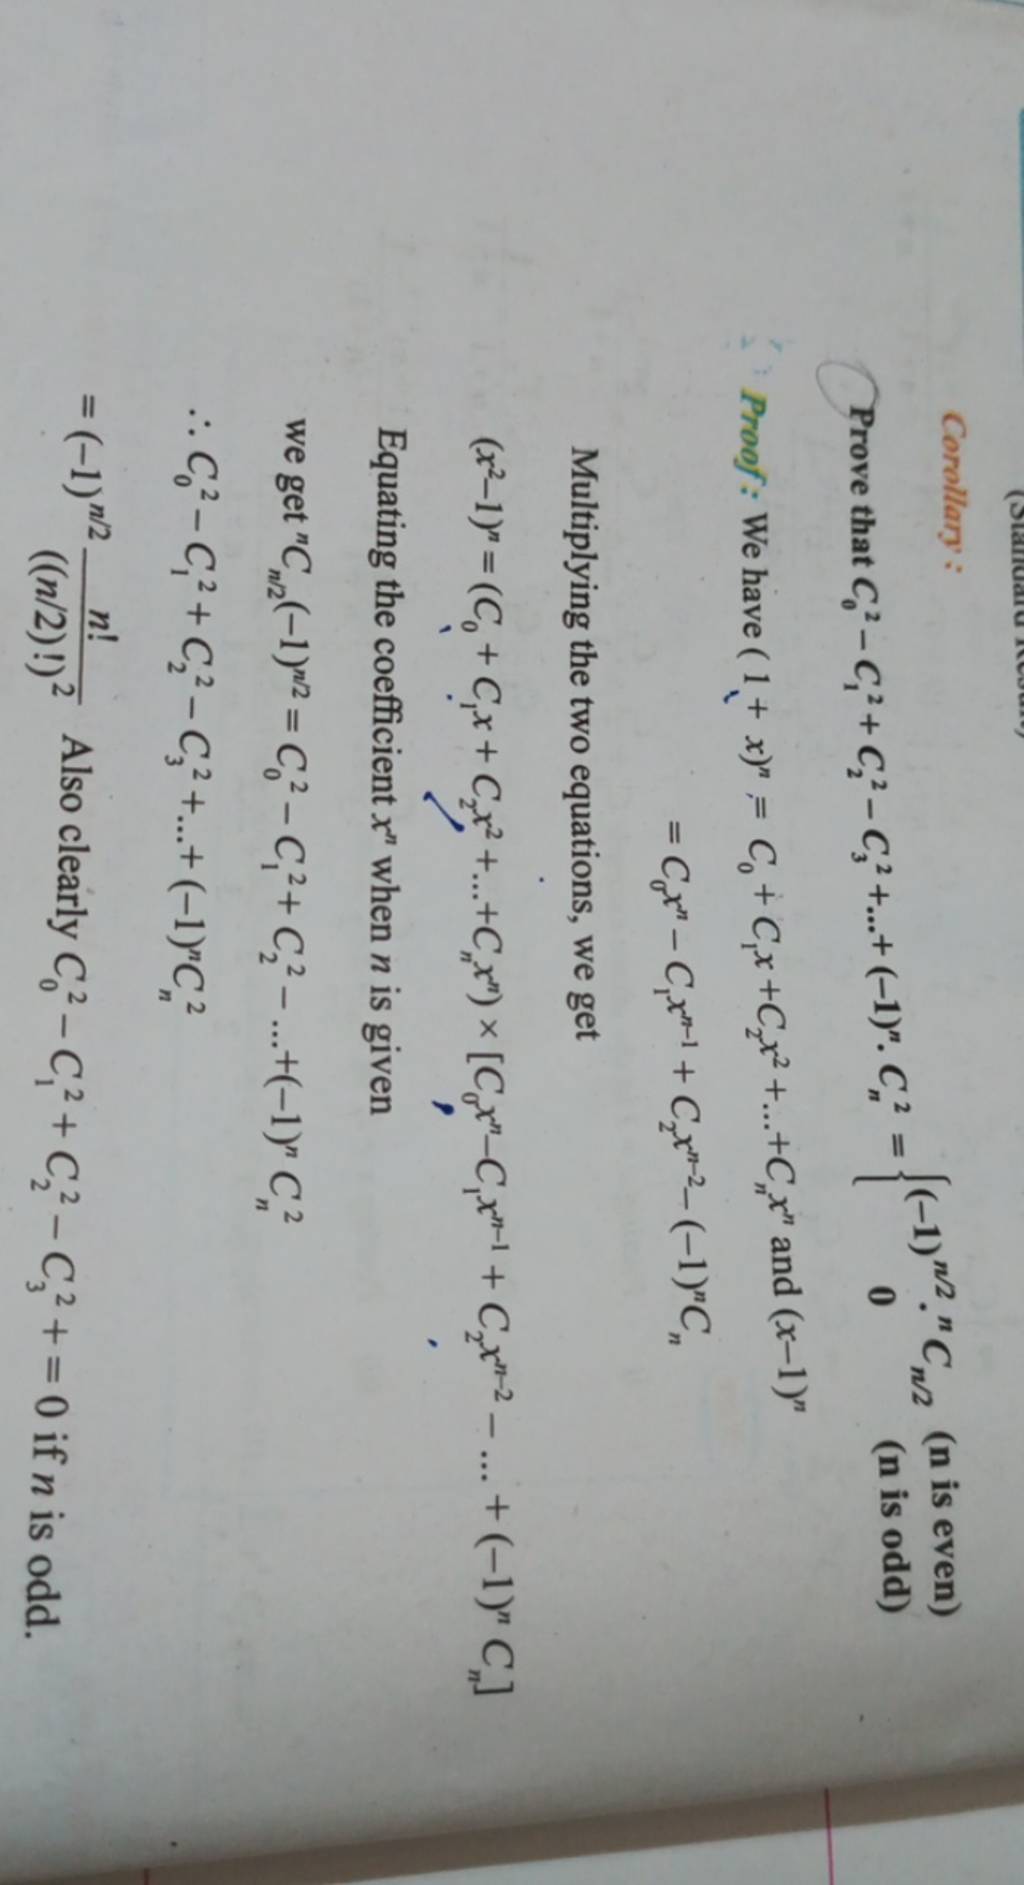 Corollary :
Prove that C₀² – C₁² + C₂² – C₃² +...+ (–1)ⁿ. Cₙ² = { (–1)^{n/2}. ⁿC_{n/2} (n is even)
0 (n is odd)
Proof : We have ( 1 + x)ⁿ = C₀ + C₁x +C₂x² +...+Cₙxⁿ and (x–1)ⁿ
= C₀xⁿ – C₁xⁿ⁻¹ + C₂xⁿ⁻² – (–1)ⁿCₙ
Multiplying the two equations, we get
(x²–1)ⁿ = (C₀ + C₁x + C₂x² +...+Cₙxⁿ) × [C₀xⁿ–C₁xⁿ⁻¹ + C₂xⁿ⁻² – ... + (–1)ⁿ Cₙ]
Equating the coefficient xⁿ when n is given
we get ⁿC_{n/2}(–1)^{n/2} = C₀² – C₁² + C₂² – ....+(–1)ⁿ Cₙ²
∴ C₀² – C₁² + C₂² – C₃² +...+ (–1)ⁿCₙ²
= (–1)^{n/2} n!/((n/2)!)² Also clearly C₀² – C₁² + C₂² – C₃² + = 0 if n is odd.